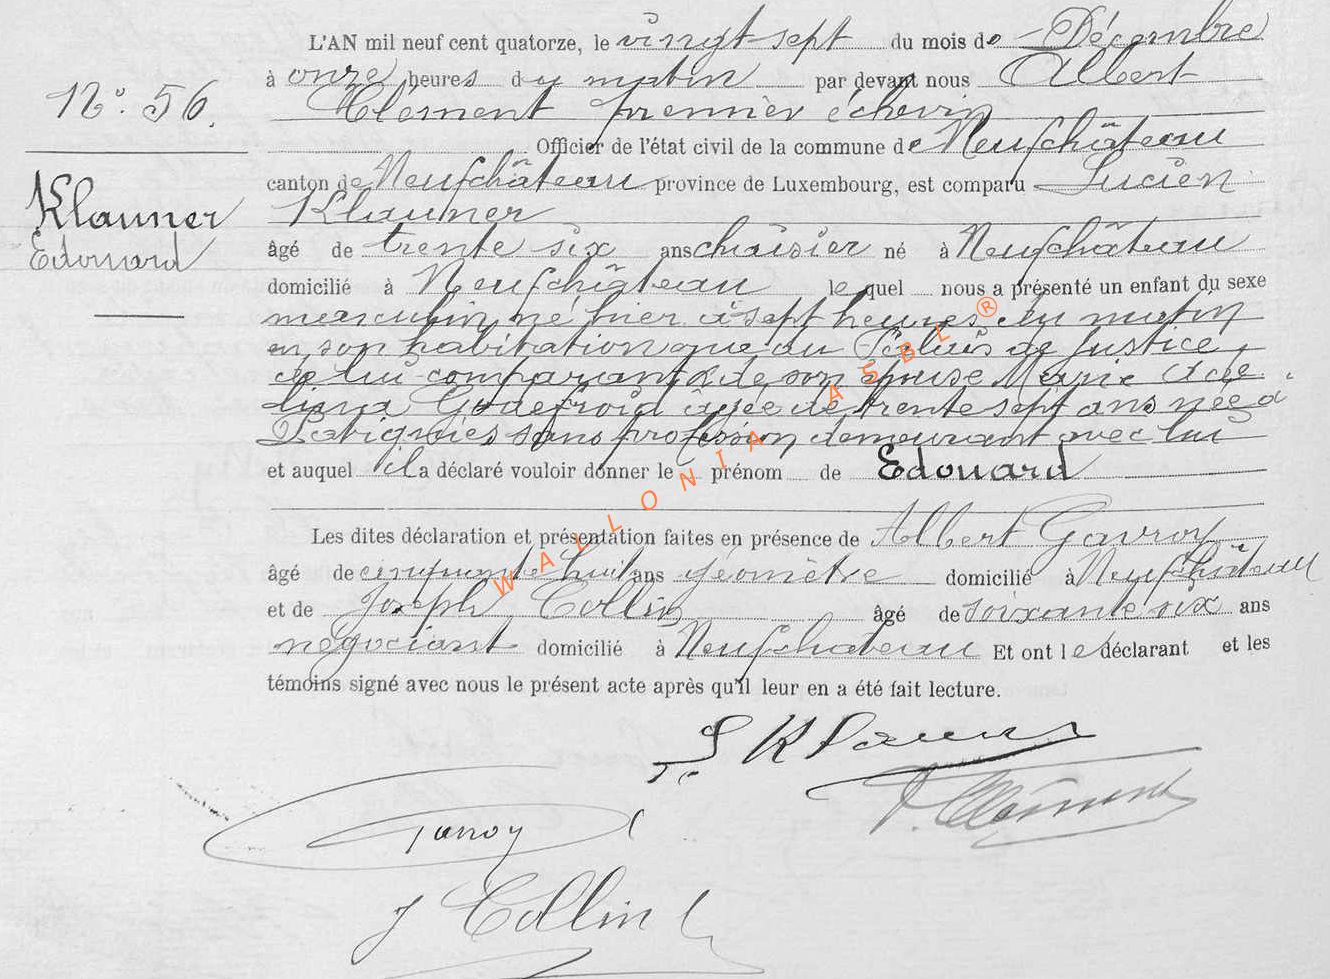 L'AN mil neuf cent quatorze, le vingt sept du mois de Décembre
N° 56.
à onze heures du matin par devant nous Albert
Clement premier échevin
Officier de l'état civil de la commune de Neufchâteau
canton de Neufchâteau province de Luxembourg, est comparu Lucien
Klauner
Klauner
Edouard
âgé de trente six ans chaisier né à Neufchâteau
domicilié à Neufchâteau le quel nous a présenté un enfant du sexe
masculin, né hier à sept heures du matin
en son habitation rue du Palais de Justice,
de lui comparant & de son épouse Marie Adeline
Godefroid âgée de trente sept ans née à
sans profession demeurant avec lui
et auquel il a déclaré vouloir donner le prénom de Edouard
Les dites déclaration et présentation faites en présence de Albert Gavroy
âgé de cinquante huit ans géomètre domicilié à Neufchâteau
et de Joseph Collin âgé de soixante six ans
négociant domicilié à Neufchateau Et ont le déclarant et les
témoins signé avec nous le présent acte après qu'il leur en a été fait lecture.
L Klauner
A. Clément
Gavroy
J Collin
WALLONIA ASBL ®